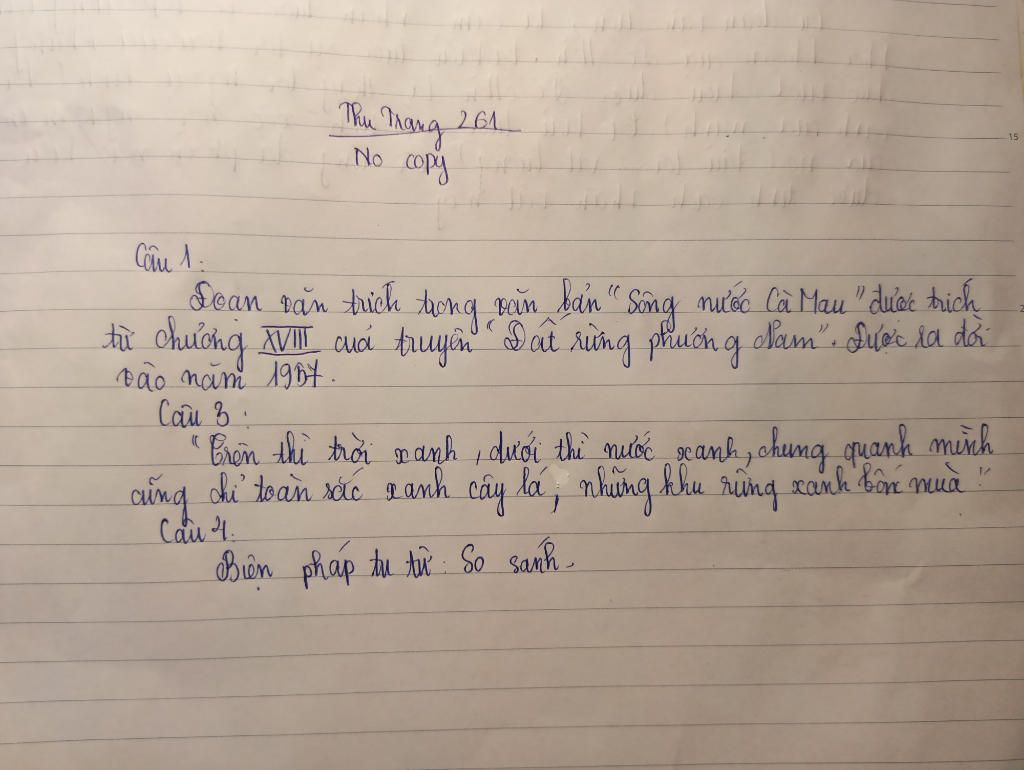 Thu Trang 261
No copy
15
Câu 1:
Đoạn văn trích trong văn bản "Sông nước Cà Mau" được trích
từ chương XVIII của truyện "Đất rừng phương Nam". Được ra đời
vào năm 1957.
Câu 3:
"Trên thì trời xanh, dưới thì nước xanh, chung quanh mình
cũng chỉ toàn sắc xanh cây lá, những khu rừng xanh bốn mùa"
Câu 4:
Biện pháp tu từ: So sánh.